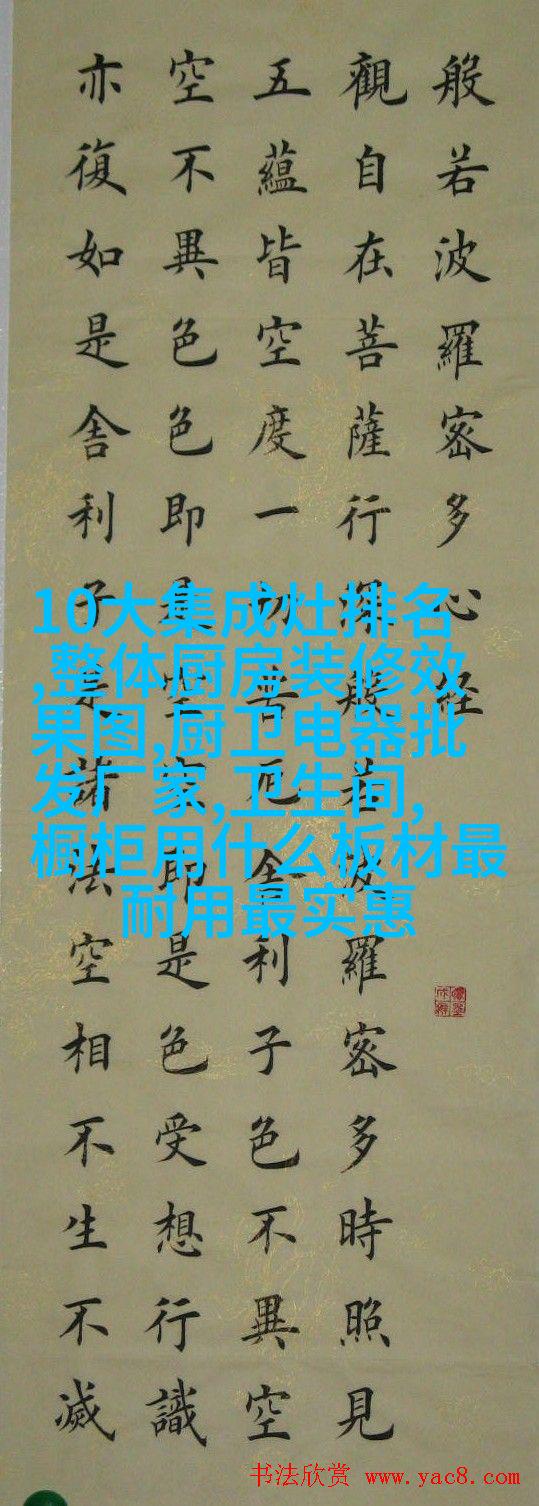 般若波羅密多心經
觀自在菩薩行深般若波羅密多時照見
五蘊皆空度一切苦厄舎利子色不異空
空不異色色即是空空即是色受想行識
亦復如是舎利子是諸法空相不生不滅
10大集成灶排名
,整体厨房装修效
果图,厨卫电器批
发厂家,卫生间,
橱柜用什么板材最
耐用最实惠
书法欣赏 www.yac8.com